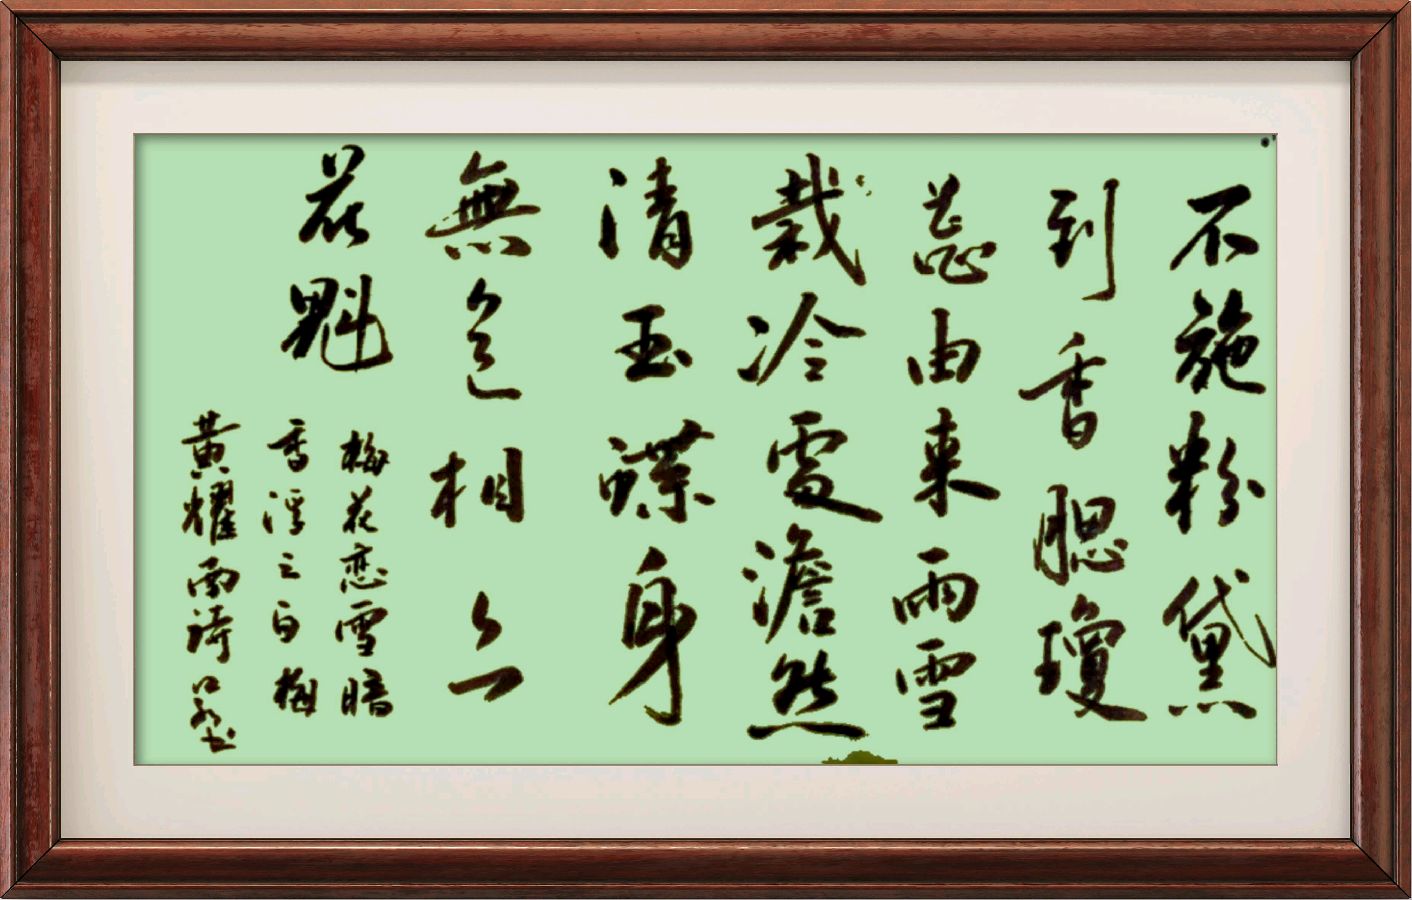 不施粉黛
到香腮瓊
蕊由来雨雪
栽冷處澹然
清玉蝶身
無色相亦
花魁
梅花恋雪暗
香浮之白梅
黃耀南詩